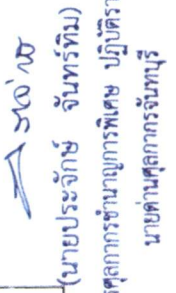 (นายประจักษ์ จันทร์ทิม)
ศุลกากรชำนาญการพิเศษ ปฏิบัติรา
นายด่านศุลกากรจันทบุรี